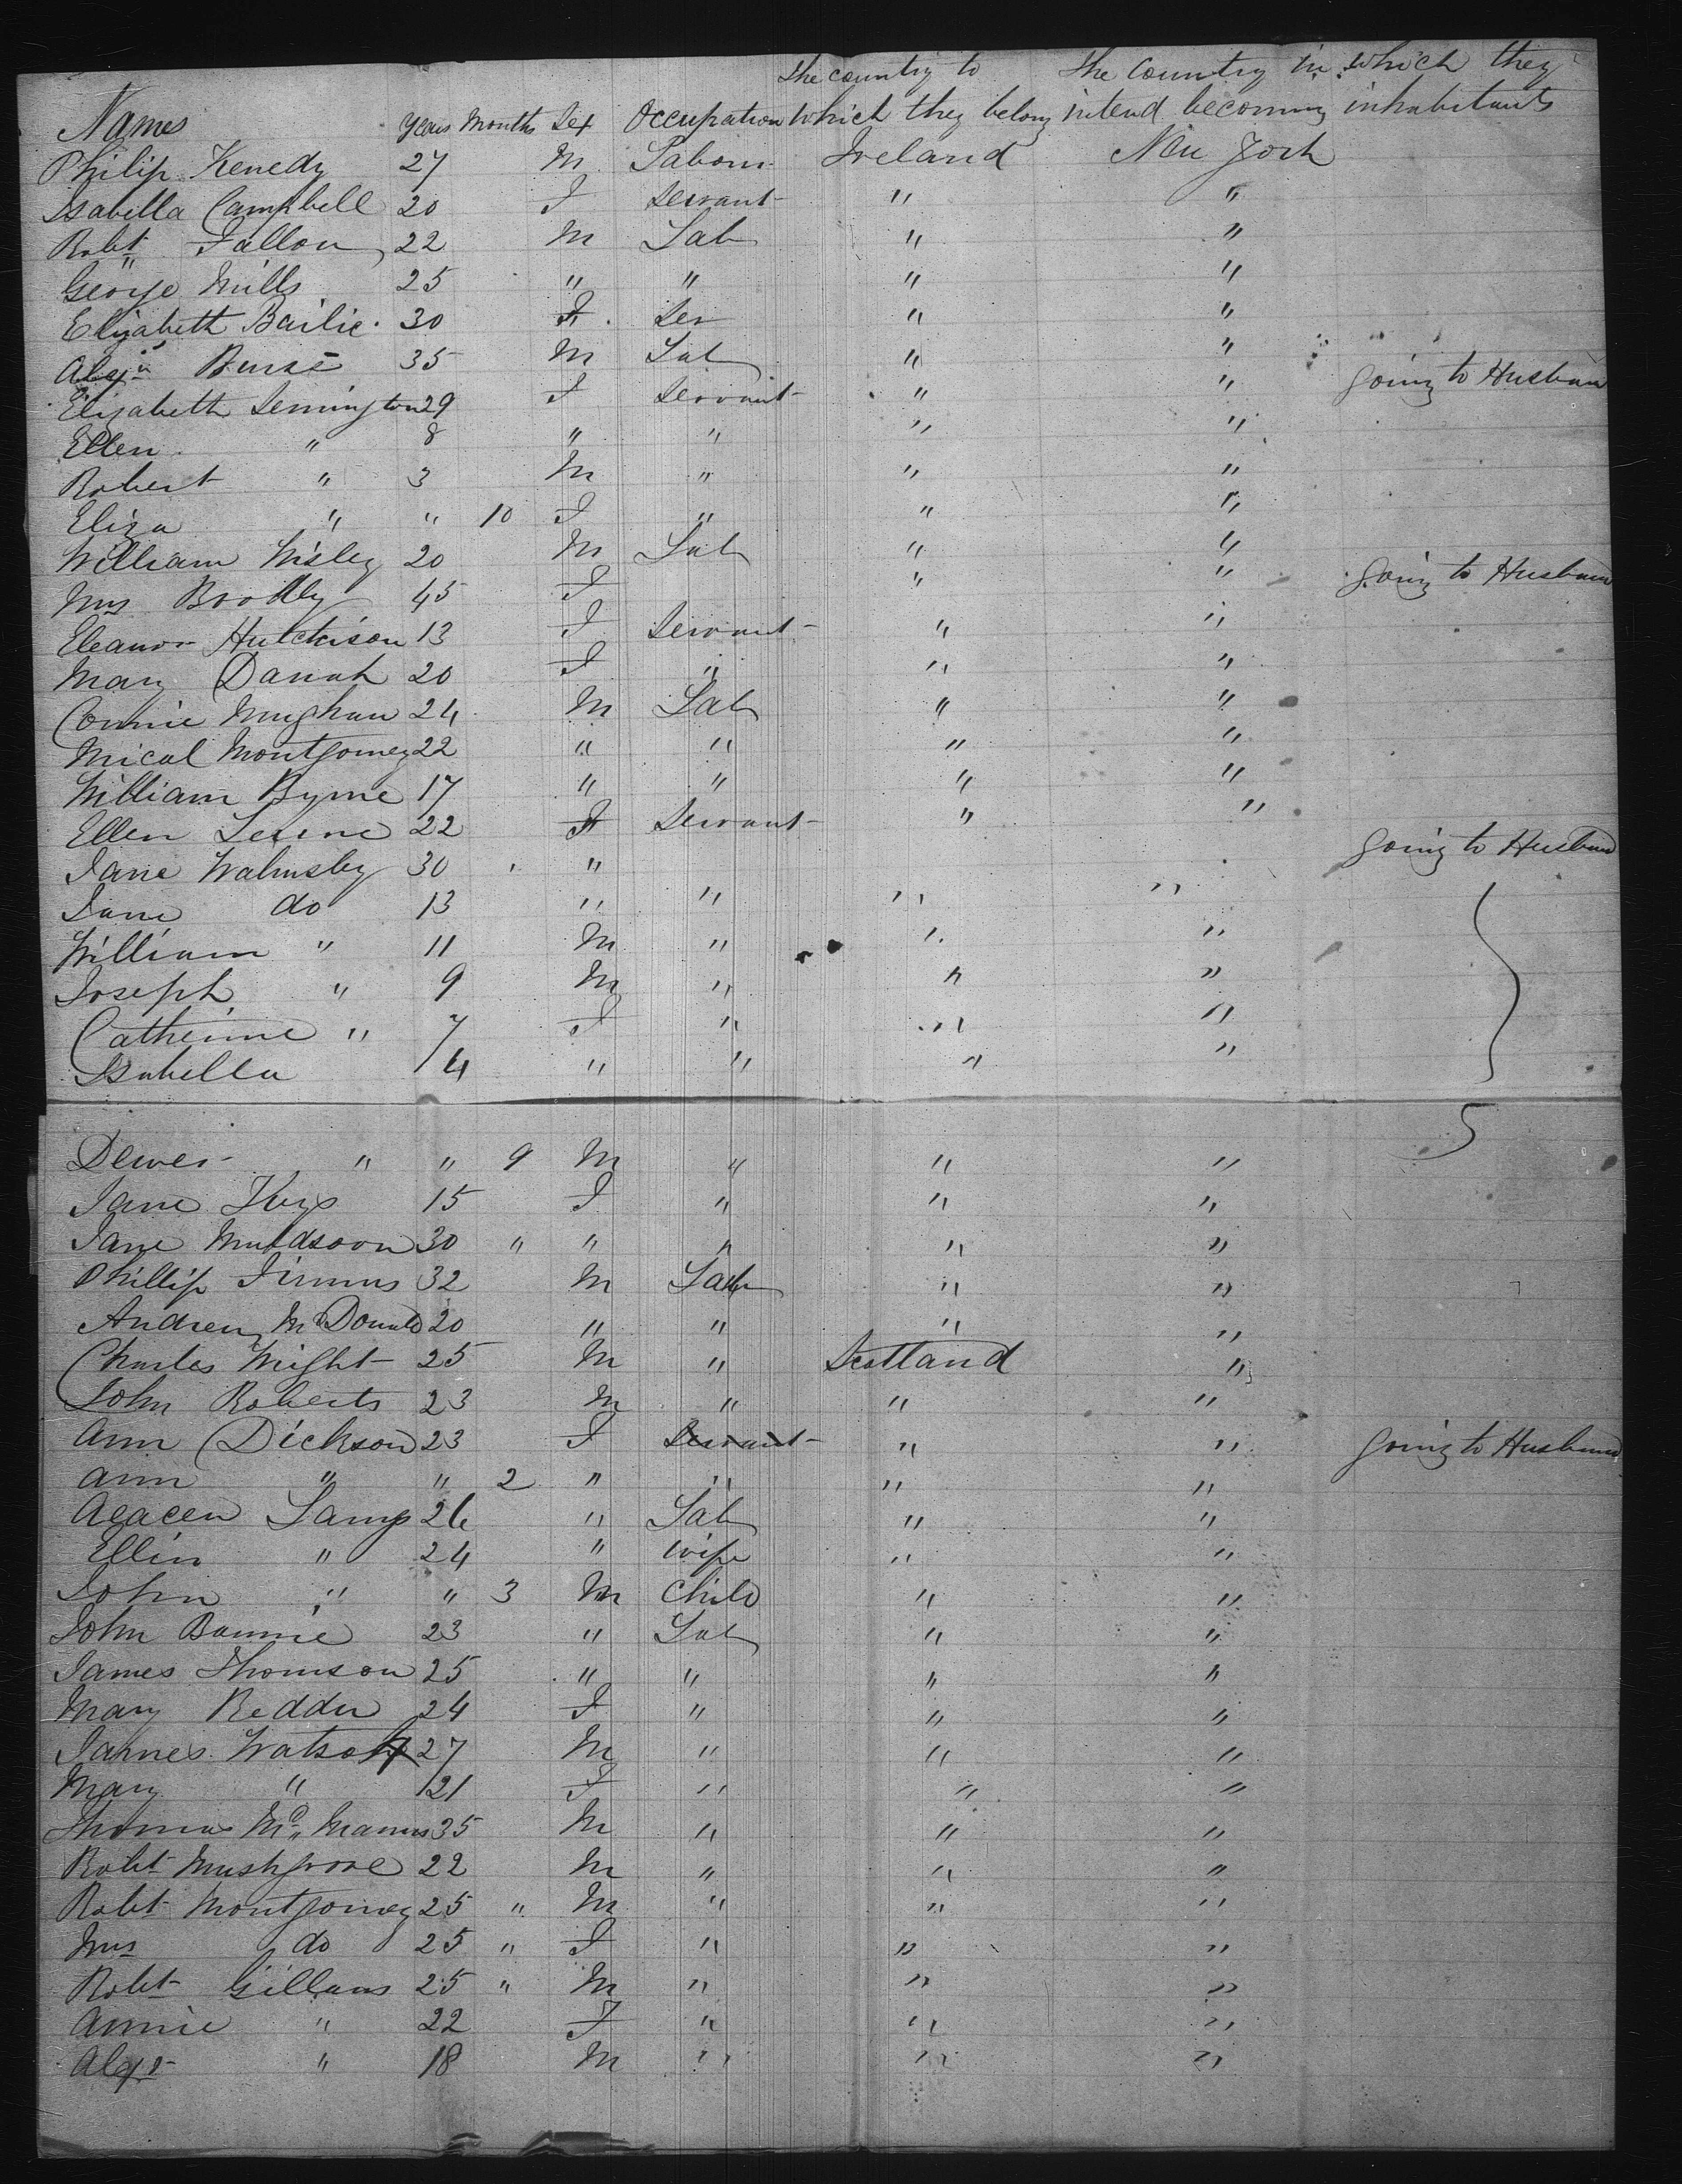 Names Years Months Sex Occupation the country to which they belong the Country in which they intend becoming inhabitants
Philip Kenedy 27 M Labour Ireland New York
Isabella Campbell 20 F Servant " "
Robt Fallon 22 M Lab " "
George Mills 25 " " " "
Elizabeth Bailie 30 F Ser " "
Alexr Burke 35 M Lab " "
Elizabeth Lemington 29 F Servant " " going to Husband
Ellen " 8 " " " "
Robert " 3 M " " "
Eliza " " 10 F " " "
William Wisley 20 M Lab " "
Mrs 45 F " " going to Husband
Eleanor Hutchison 13 F Servant " "
Mary Darrah 20 F " " "
Connie Mughan 24 M Lab " "
Mical Montgomey 22 " " " "
William Byrne 17 " " " "
Ellen 22 F Servant " "
Jane Walmsley 30 " going to Husband
Jane do 13 " " " "
William " 11 M " " "
Joseph " 9 M " " "
Catherine " 7 F " " "
Isabella 4 " " " "
" " 9 M " " "
Jane Keys 15 F " " "
Jane Muldsoon 30 " " " " "
Phillip 32 M Lab " "
Andrew McDonald 20 " " " "
Charles Wright 25 M " Scotland "
John Roberts 23 M " " "
Ann Dickson 23 F Servant " " going to Husband
Ann " " 2 " " " "
Lamp 26 " Lab " "
Ellin " 24 " wife " "
John " " 3 M Child " "
John Bannie 23 " Lab " "
James Thomson 25 " " " "
Mary 24 F " " "
James Watson 27 M " " "
Mary " 21 F " " "
Thomas Mc Manus 35 M " " "
Robt Mushgrove 22 M " " "
Robt Montgomey 25 " M " " "
Mrs do 25 " F " " "
Robt Gillans 25 " M " " "
Annie " 22 F " " "
Alexr " 18 M " " "